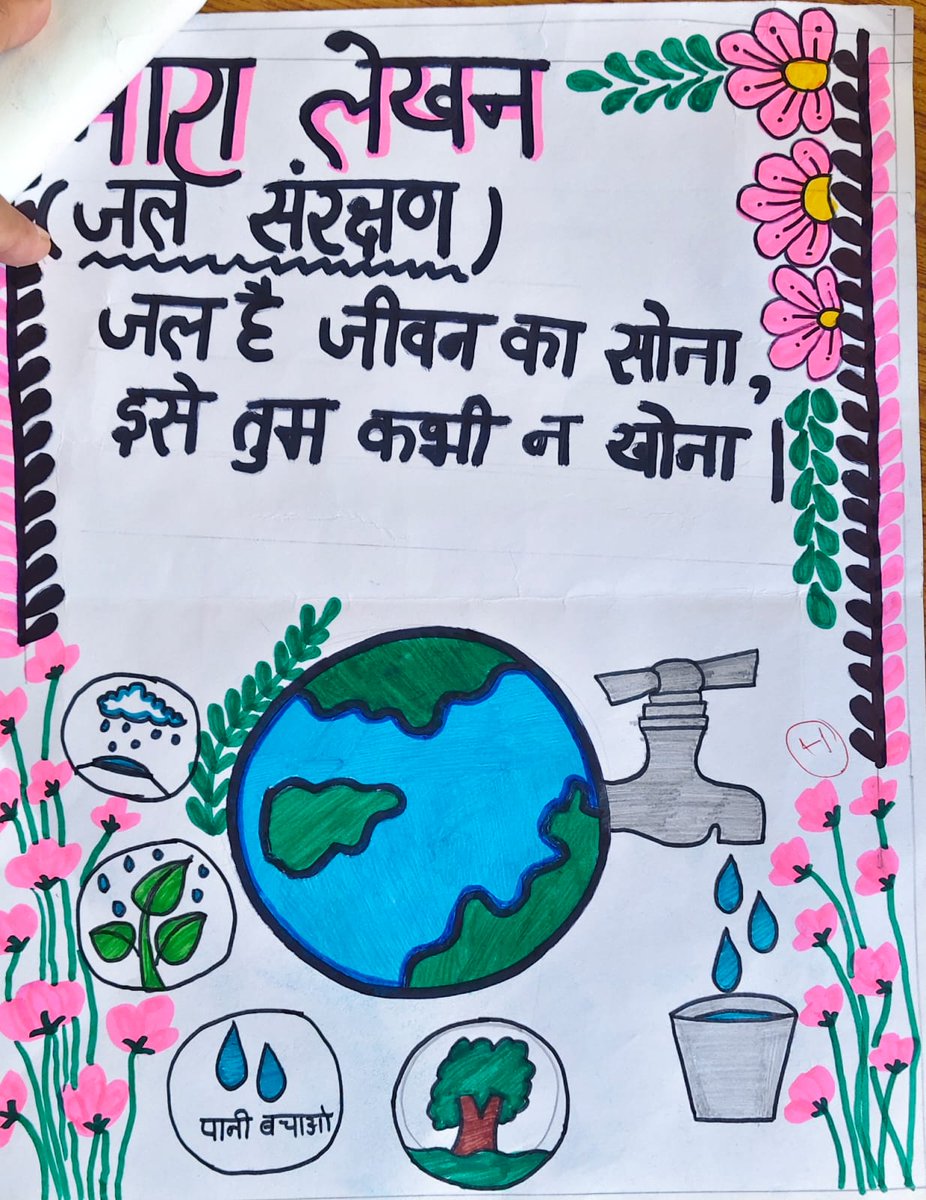 नारा लेखन
(जल संरक्षण)
जल है जीवन का सोना,
इसे तुम कभी न खोना।
पानी बचाओ